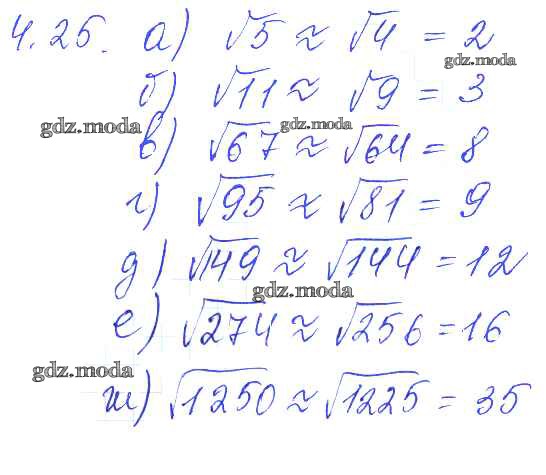 4.25. а) √5 ≈ √4 = 2
gdz.moda
б) √11 ≈ √9 = 3
gdz.moda
gdz.moda
в) √67 ≈ √64 = 8
г) √95 ≈ √81 = 9
д) √149 ≈ √144 = 12
gdz.moda
е) √274 ≈ √256 = 16
gdz.moda
ж) √1250 ≈ √1225 = 35